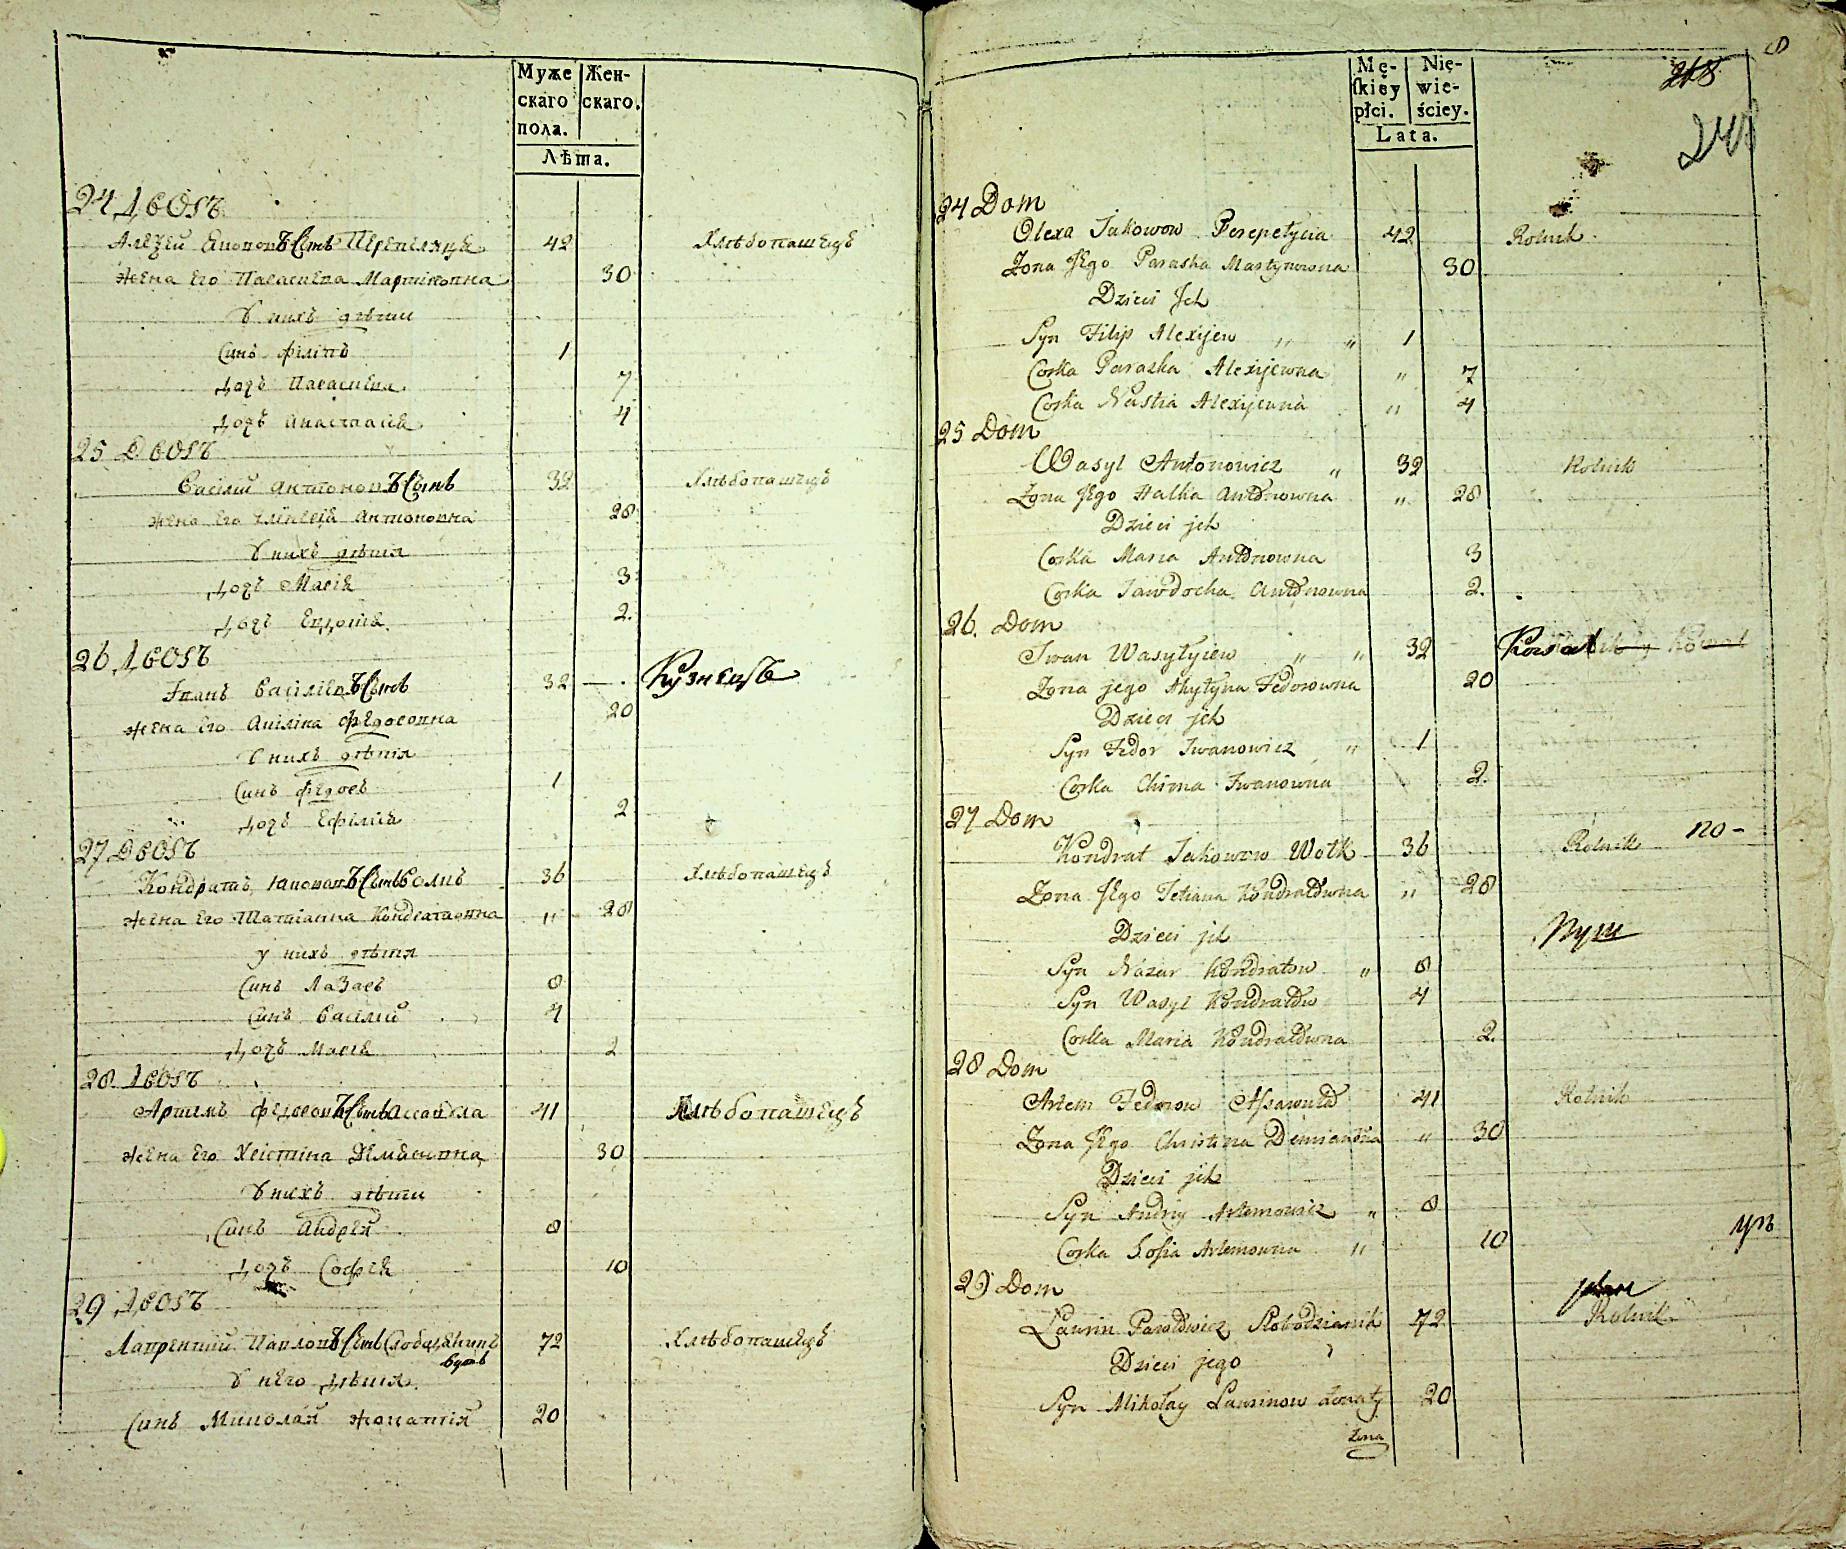 Муже
скаго
пола.
Жен-
скаго.
Лѣта.
24 Дворъ
Алеѯей Яковов Сынъ Перепелица 42 Хлѣбопашецъ
жена его Параскева Мартиновна 30
У нихъ дѣти
Синъ Филипъ 1
Дочь Параскева 7
Дочь Анастасия 4
25 Дворъ
Василий Антоновъ Сынъ 32 Хлѣбопашецъ
жена его Антоновна 28
У нихъ дѣтя
Дочь Мария 3
Дочь Евдокия 2.
26 Дворъ
Іванъ Василіевъ Сынъ 32 Кузнецъ
жена его Акилина Федоровна 20
У нихъ дѣтія
Синъ Федоръ 1
Дочь 2
27 Дворъ
Кондратъ Яковов Сынъ Волкъ 36 Хлѣбопашецъ
жена его Татіанна Кондратовна " 28
у нихъ дѣтя
Синъ Лазаръ 8
Синъ Василий 4
Дочь Мария 2
28 Дворъ
Артемъ Федоров Сынъ Ассавула 41 Хлѣбопашецъ
жена его Христина Демяновна 30
У нихъ дѣти
Синъ Андрей 8
Дочь София 10
29 Дворъ
Лаврентий Павлов Сынъ Слободянинъ 72 Хлѣбопашецъ
У него дѣтія.
Синъ Миколай жонатий 20
8
218
Mę-
skiey
płci.
Nie-
wie-
ściey.
Lata.
24 Dom
Olexa Jakowow Perepełycia 42 Rolnik
Zona Jego Paraska Martynowna 30
Dzieci Jch
Syn Filip Alexijew " " 1
Corka Paraska Alexijewna " 7
Corka Nastia Alexijewna " 4
25 Dom
Wasyl Antonowicz " 32 Rolnik
Zona Jego Halka Antonowna " 28
Dzieci jch
Corka Maria Antonowna 3
Corka Jawdocha Antonowna 2.
26. Dom
Jwan Wasylyiew " " 32 Kowal
Zona jego Akyłyna Fedorowna 20
Dzieci jch
Syn Fedor Jwanowicz " 1
Corka Chima Jwanowna 2.
27 Dom
Kondrat Jakowow Wołk 36 Rolnik
Zona Jego Tetiana Kondratowna " 28
Dzieci jch
Syn Nazar Kondratow " 8
Syn Wasyl Kondratow 4
Corka Maria Kondratowna 2.
28 Dom
Artem Fedorow Assawuła 41 Rolnik
Zona Jego Christina Demianowna " 30
Dzieci jch
Syn Andriy Artemowicz " 8
Corka Sofia Artemowna " 10
29 Dom
Lawrin Pawłowicz Słobodzianik 72 Rolnik
Dzieci jego
Syn Mikołay Lawrinow żonaty 20
żona